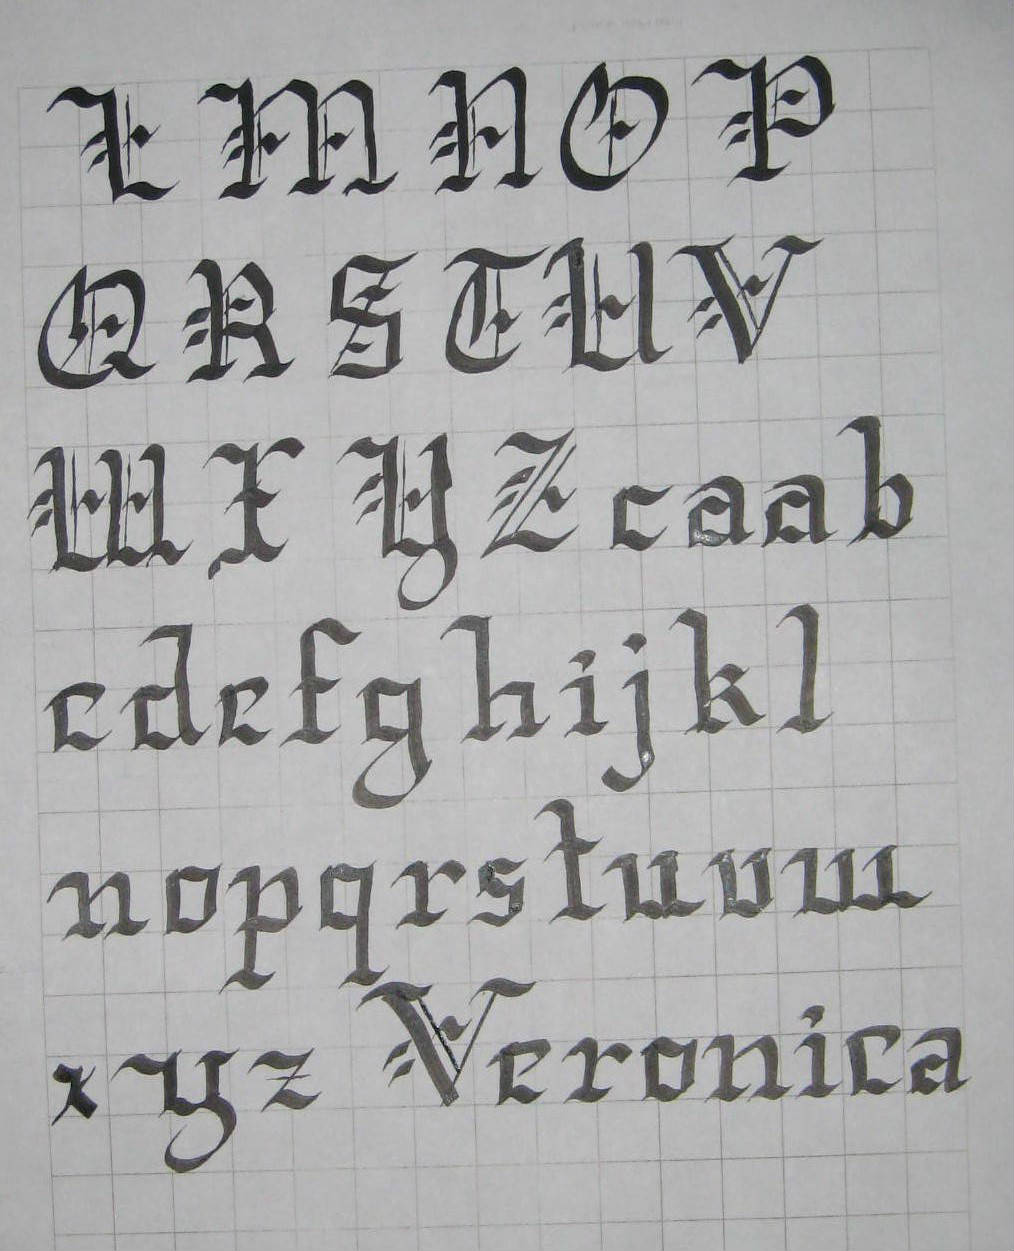 L M N O P
Q R S T U V
W X Y Z c a a b
c d e f g h i j k l
n o p q r s t u v w
x y z Veronica